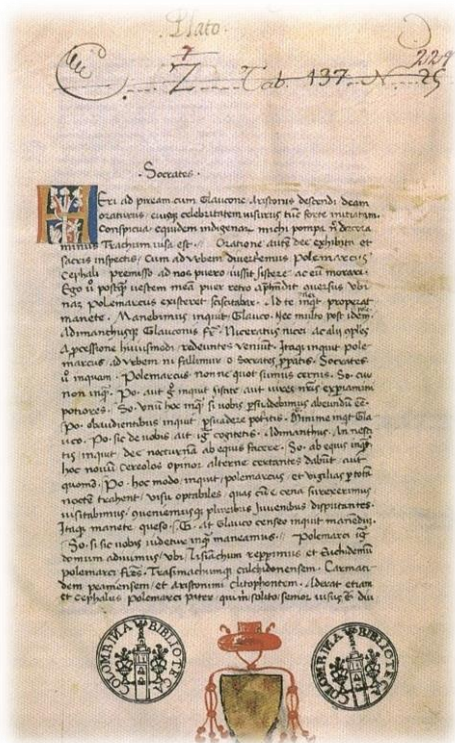 Plato.
Z Tab. 137. N. 25
229
· Socrates ·
Eri ad piream cum Glaucone Aristonis descendi deam
oraturus eiusq celebritatem uisurus tuc forte initiatam.
Conspicua equidem indigenar michi pompa n decora
minus Trachum uisa est. Oratione aute dec exhibita et
sacris inspectis, Cum ad vrbem diuertemus Polemarcus
Cephali premisso ad nos puero iussit sistere ac eu morari.
Ego u postq vestem mea puer retro apprendit quersus vbi
nam Polemarcus existeret sciscitabar. Ad te inqt properat
manete. Manebimus inquit Glauco. Nec multo post idem
Adimanthusq Glauconis fr. Niceratus nicei ac alij
A pcessione huiusmodi redeuntes veniut. Itaq inquit Pole
marcus ad vrbem ni fallimur o Socrates ppatis. Socrates
u inquam. Polemarcus non ne quot sumus cernis. So. cur
non inq. Po. aut g inquit sistite aut vires nras expiamini
potiores. So. Venu hoc inq si uobis psuadebimus abeundu ee.
Po. obaudientibus inquit psuadere potitis. Minime inqt Gla
uco. Po. sic de uobis aut ig cogitetis. Adimanthus. An nesci
tis inquit dec nocturna ab equis facere. So. ab equis inq
hoc nouu Cereolos opinor alterne certantes dabut aut
quomo. Po. hoc modo inquit polemarcus et vigilias p tota
nocte trahont visu optabiles quas cu e cena surrexerimus
uisitabimus, queniemusq pluribus Juuenibus disputantes.
Itaq manete queso. G. at Glauco censeo inquit manedu.
So. si sic uobis uidetur inq maneamus. Polemarci ig
domum adiuimus vbi Lisiachum repperimus et Euthidemu
polemarci fres. Trasimachumq calchidonensem. Carman
dem peamensem et aristonimi clitophontem. Aderat etiam
et Cephalus Polemarci pater qui insolito semor uisus e diu
COLOMBINA BIBLIOTECA
COLOMBINA BIBLIOTECA